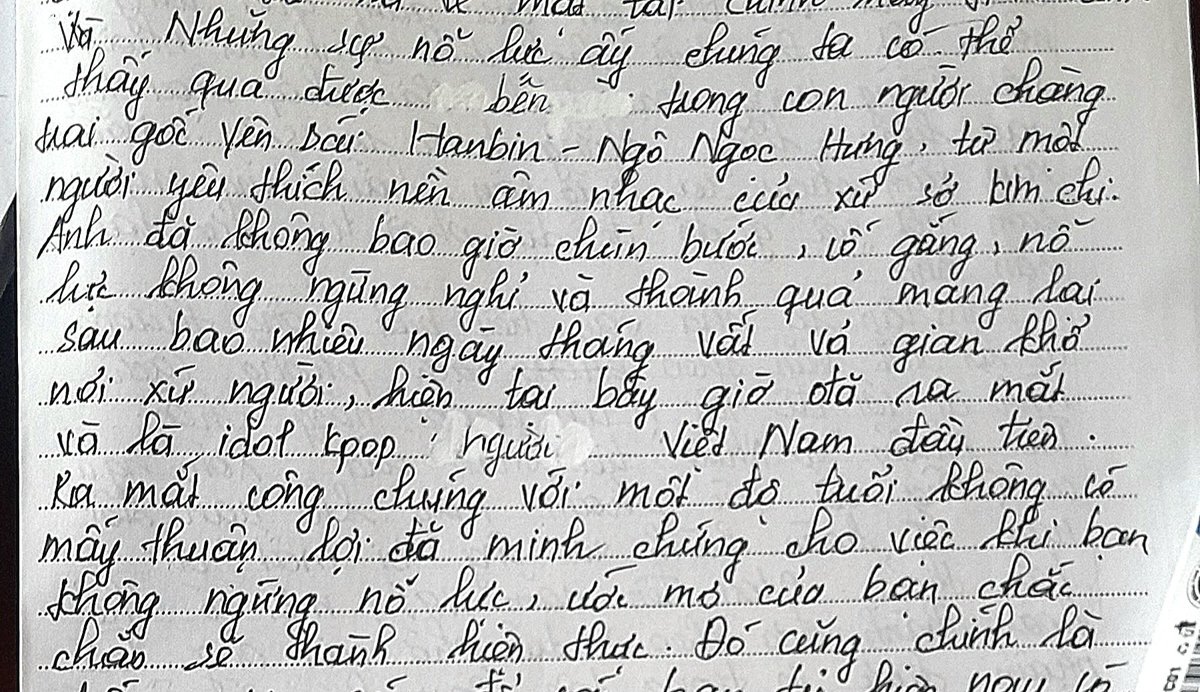 Và Những sự nỗ lực ấy chúng ta có thể
thấy qua được bên trong con người chàng
trai gốc Yên Bái: Hanbin - Ngô Ngọc Hưng, từ một
người yêu thích nền âm nhạc của xứ sở kim chi.
Anh đã không bao giờ chùn bước, cố gắng, nỗ
lực không ngừng nghỉ và thành quả mang lại
sau bao nhiêu ngày tháng vất vả gian khổ
nơi xứ người, hiện tại bây giờ đã ra mắt
và là idol kpop người Việt Nam đầu tiên.
Ra mắt công chúng với một độ tuổi không có
mấy thuận lợi đã minh chứng cho việc khi bạn
không ngừng nỗ lực, ước mơ của bạn chắc
chắn sẽ thành hiện thực. Đó cũng chính là